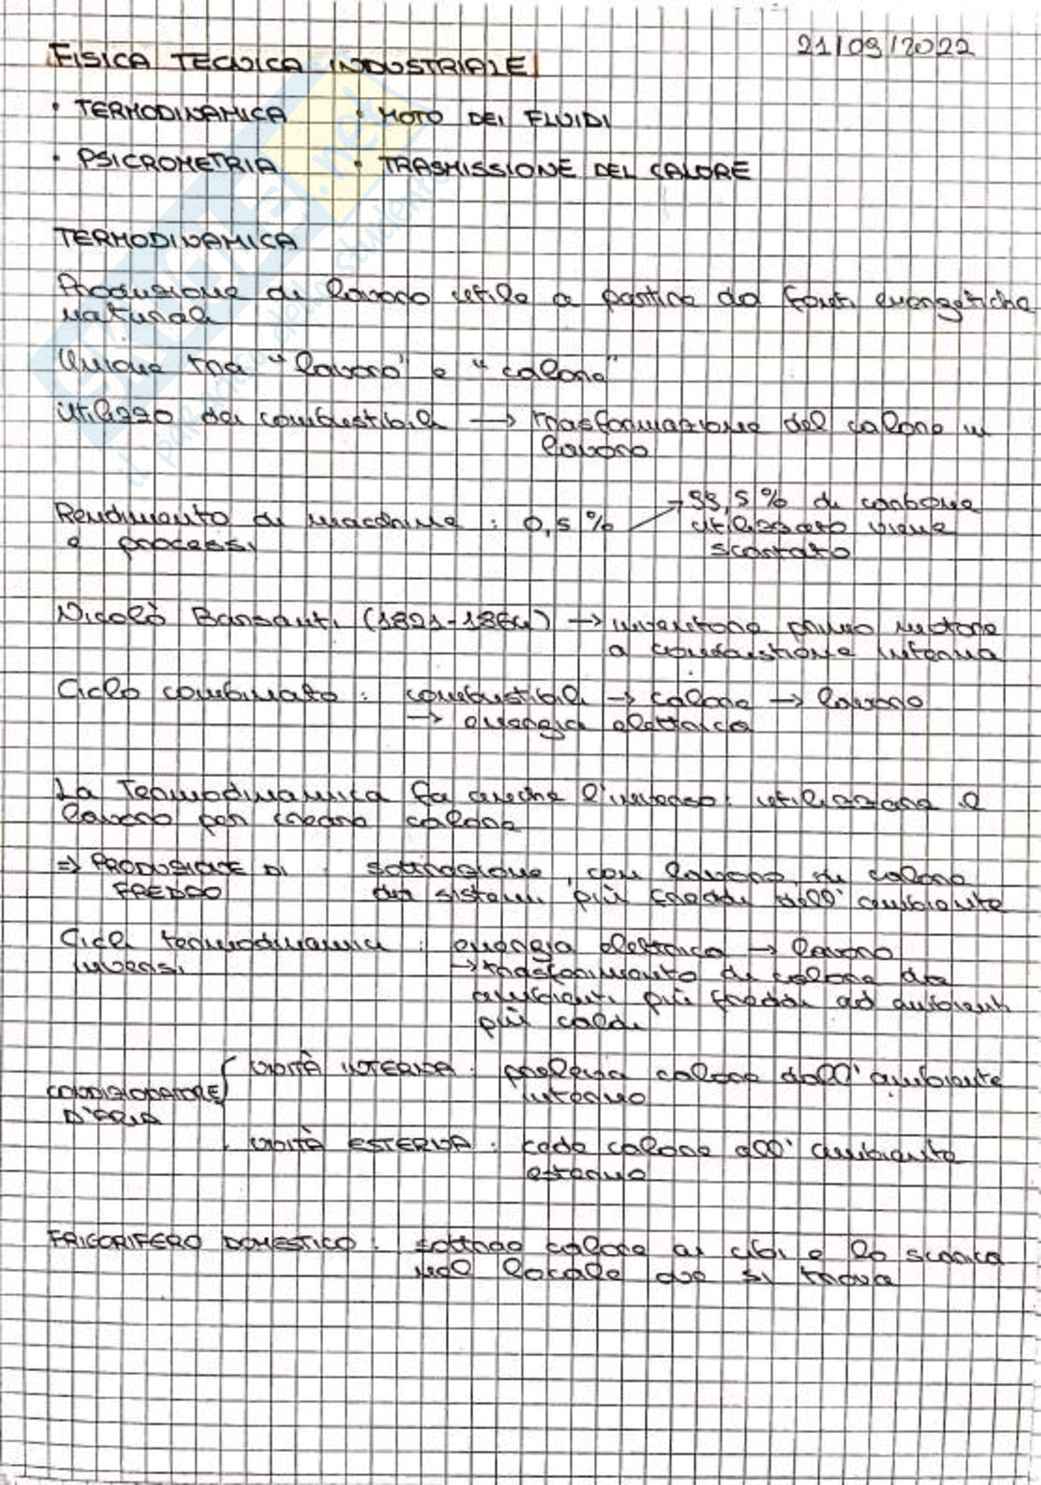 21/09/2022
FISICA TECNICA INDUSTRIALE
• TERMODINAMICA • MOTO DEI FLUIDI
• PSICROMETRIA • TRASMISSIONE DEL CALORE
TERMODINAMICA
Produzione di lavoro utile a partire da fonti energetiche
naturali
Unione tra "lavoro" e "calore"
Utilizzo dei combustibili → trasformazione del calore in
lavoro
Rendimento di macchine : 0,5% → 99,5% di carbone
e processi utilizzato viene
scartato
Nicolò Barsanti (1821-1864) → inventore primo motore
a combustione interna
Ciclo combinato : combustibili → calore → lavoro
→ energia elettrica
La Termodinamica fa anche l'inverso: utilizzare il
lavoro per creare calore
⇒ PRODUZIONE DI : sottrazione, con lavoro, di calore
FREDDO da sistemi più freddi dell'ambiente
Cicli termodinamici : energia elettrica → lavoro
inversi → trasferimento di calore da
ambienti più freddi ad ambienti
più caldi
UNITÀ INTERNA : preleva calore dall'ambiente
interno
CONDIZIONATORE
D'ARIA
UNITÀ ESTERNA : cede calore all'ambiente
esterno
FRIGORIFERO DOMESTICO : sottrae calore ai cibi e lo scarica
nel locale ove si trova